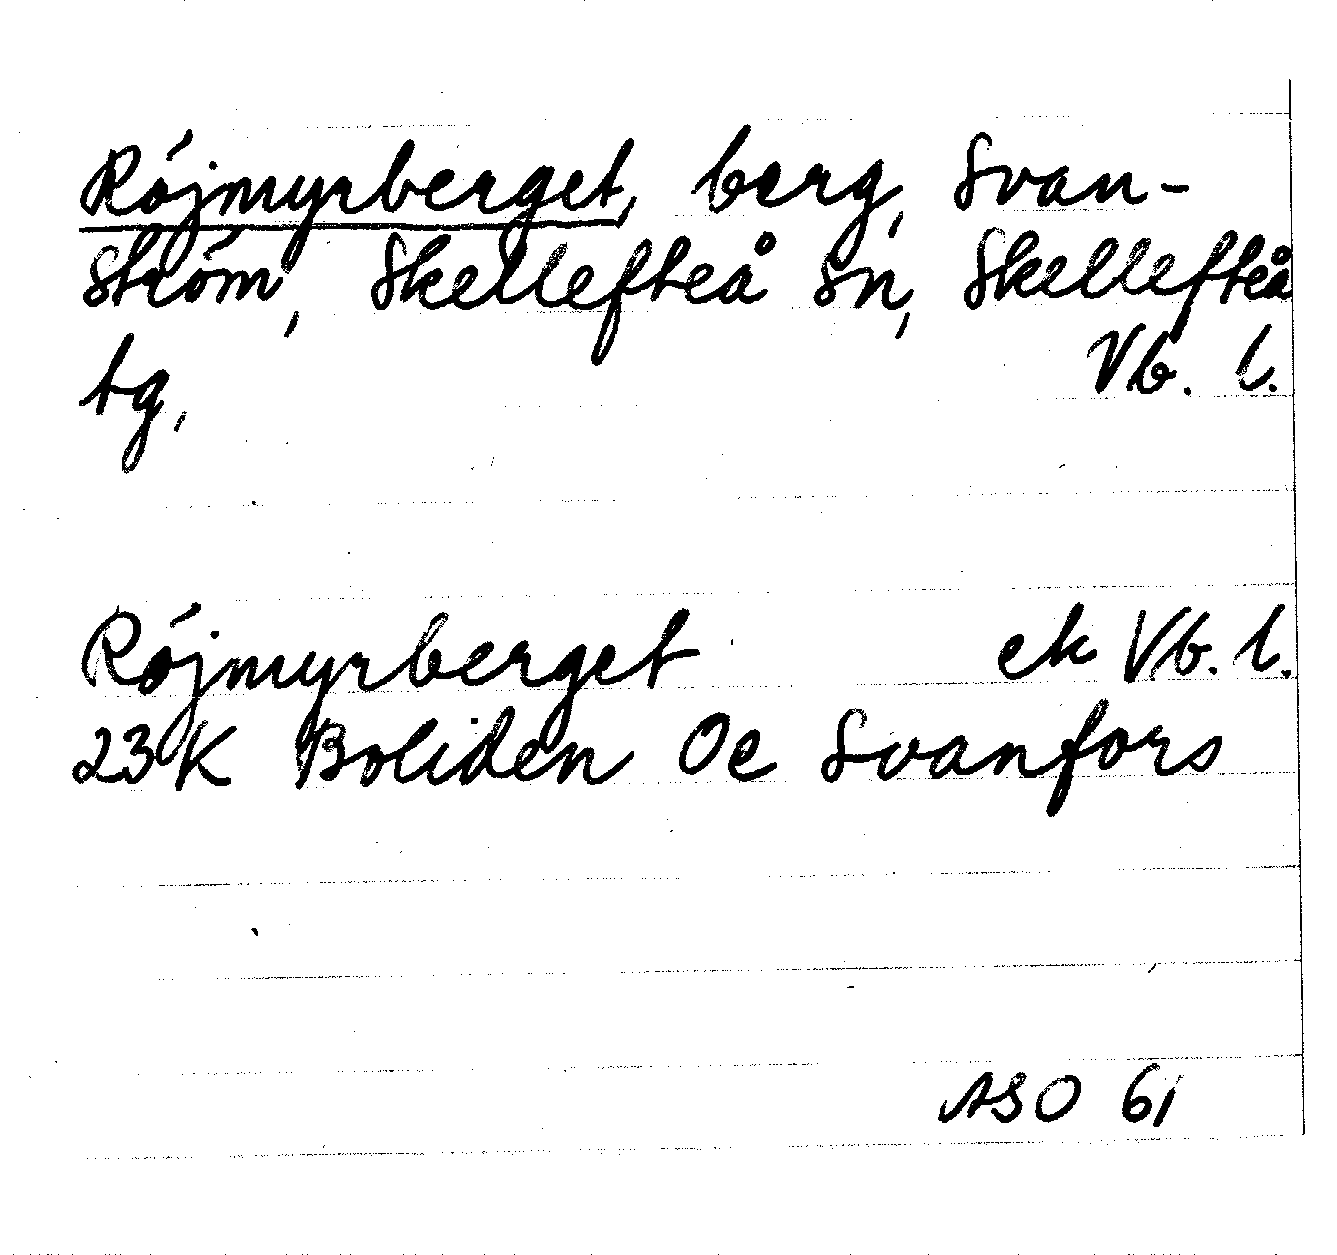 Röjmyrberget, berg, Svan-
ström, Skellefteå sn, Skellefteå
tg, Vb. l.
Röjmyrberget ek Vb. l.
23K Boliden Oe Svanfors
ASO 61